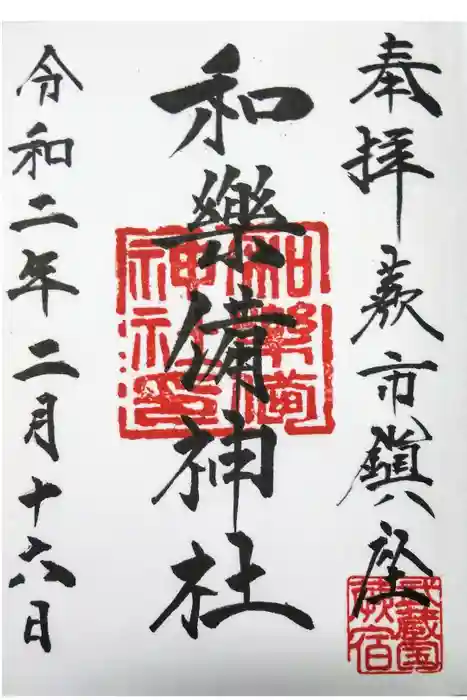 奉拝 蕨市鎮座
武蔵国
蕨宿
和樂備神社
和樂備
神社印
令和二年二月十六日